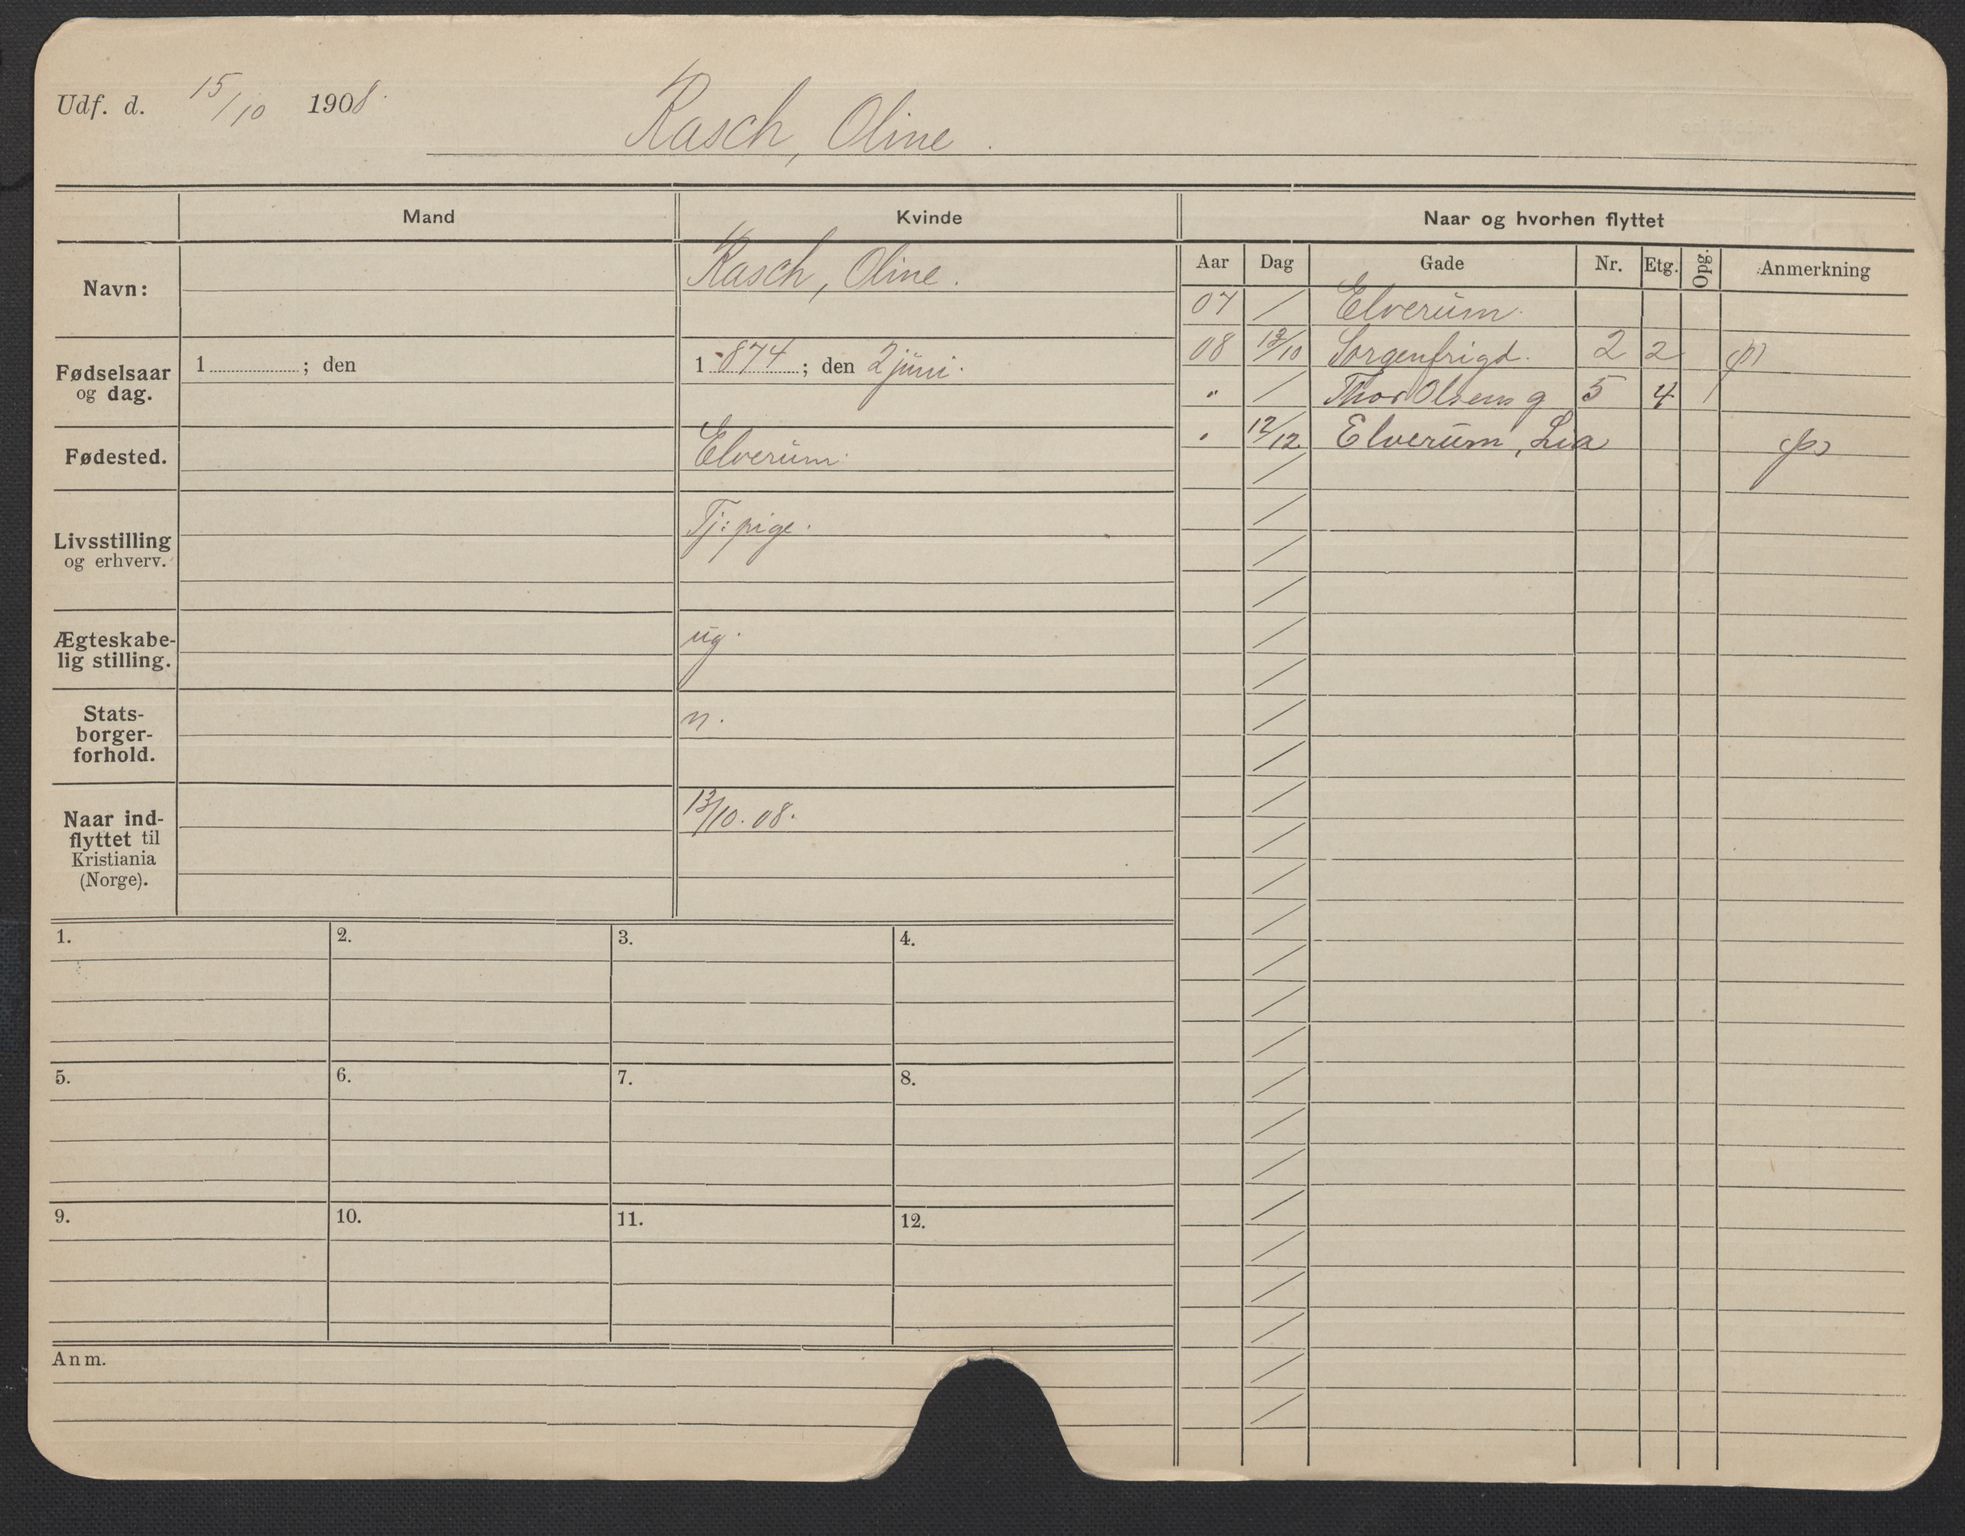 Udf. d. 15/10 1908.
Rasch, Oline.
Mand Kvinde Naar og hvorhen flyttet
Aar Dag Gade Nr. Etg. Opg. Anmerkning
Navn: Rasch, Oline.
07 / Elverum.
08 13/10 Sorgenfrigd. 2 2 (p)
Fødselsaar
og dag.
1 ; den
1 874 ; den 2 juni.
" / Thor Olsens g 5 4
" 12/12 Elverum, Lia (ps)
Fødested. Elverum.
Livsstilling
og erhverv.
Tj: pige.
Ægteskabe-
lig stilling.
ug.
Stats-
borger-
forhold.
n.
Naar ind-
flyttet til
Kristiania
(Norge).
13/10.08.
1. 2. 3. 4.
5. 6. 7. 8.
9. 10. 11. 12.
Anm.